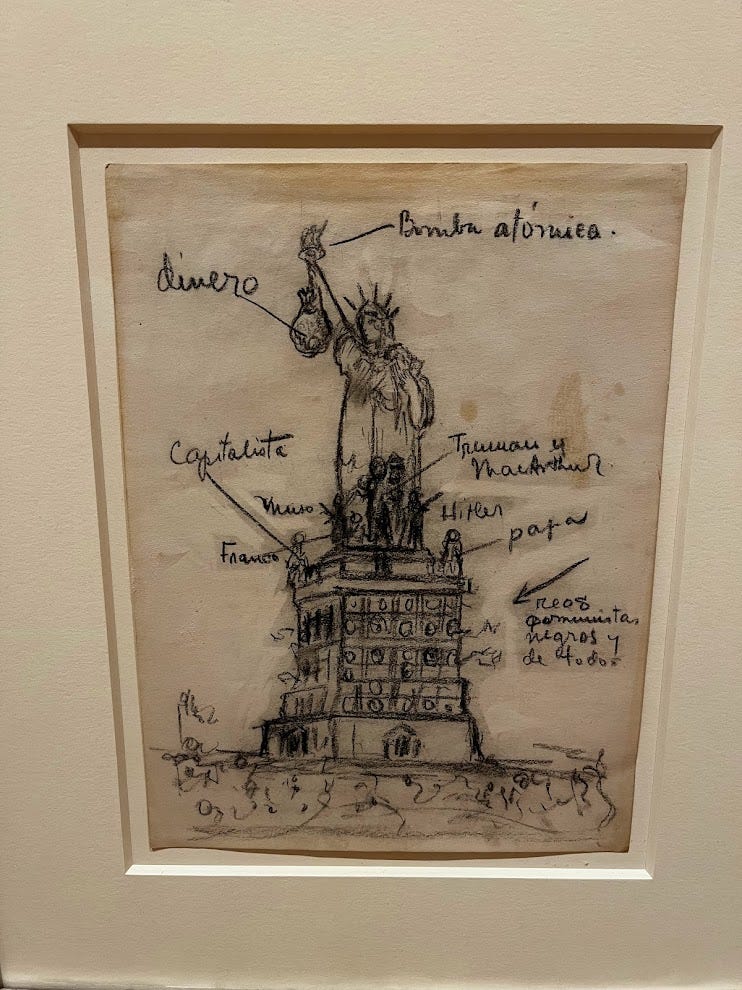 Bomba atómica.
dinero
Capitalista
Truman y
MacArthur.
Muso
Hitler
Franco
papa
reos
comunistas
negros y
de todos